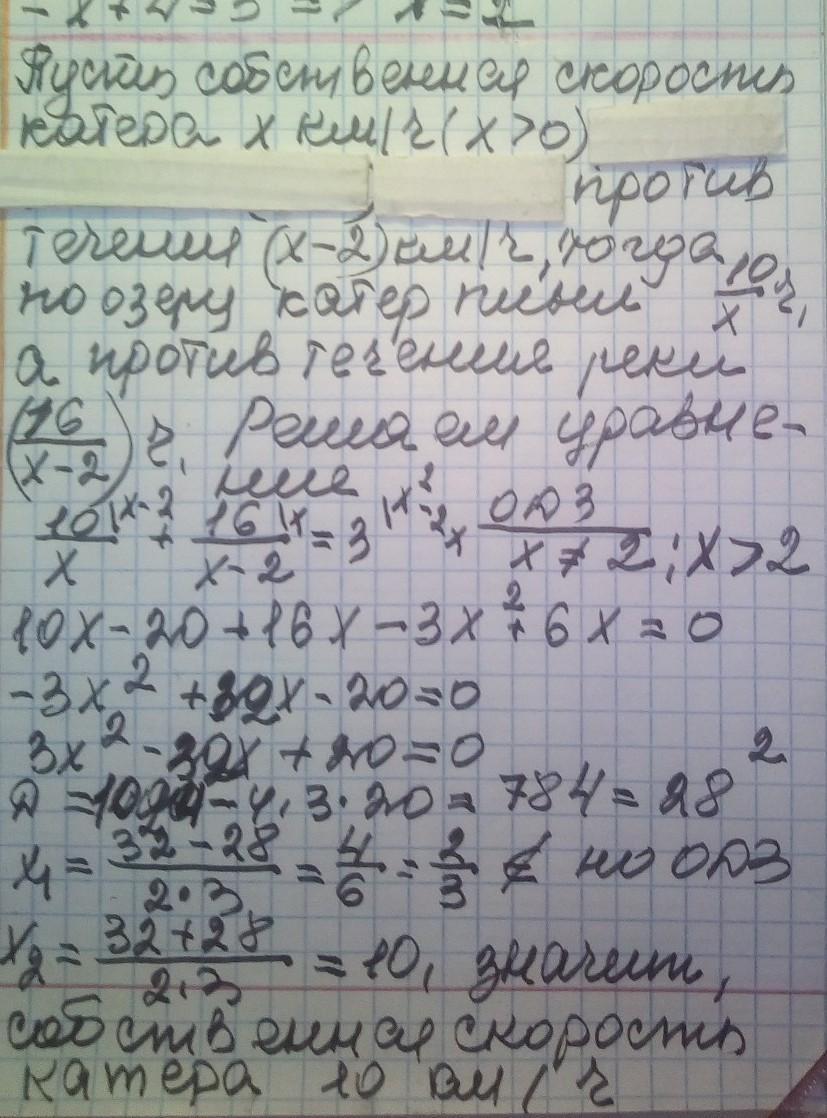 - x + 4 = 3 => x = 2
Пусть собственная скорость
катера x км/ч (x>0)
против
течения (x-2) км/ч, тогда
по озеру катер плыл 10/x ч,
а против течения реки
(16/(x-2)) ч. Решаем уравне-
ние
10/x |x-2 + 16/(x-2) |x = 3 |x²-2x ОДЗ x ≠ 2; x > 2
10x - 20 + 16x - 3x² + 6x = 0
-3x² + 32x - 20 = 0
3x² - 32x + 20 = 0
D = 1024 - 4·3·20 = 784 = 28²
x₁ = (32 - 28)/(2·3) = 4/6 = 2/3 ∉ по ОДЗ
x₂ = (32 + 28)/(2·3) = 10, значит,
собственная скорость
катера 10 км/ч